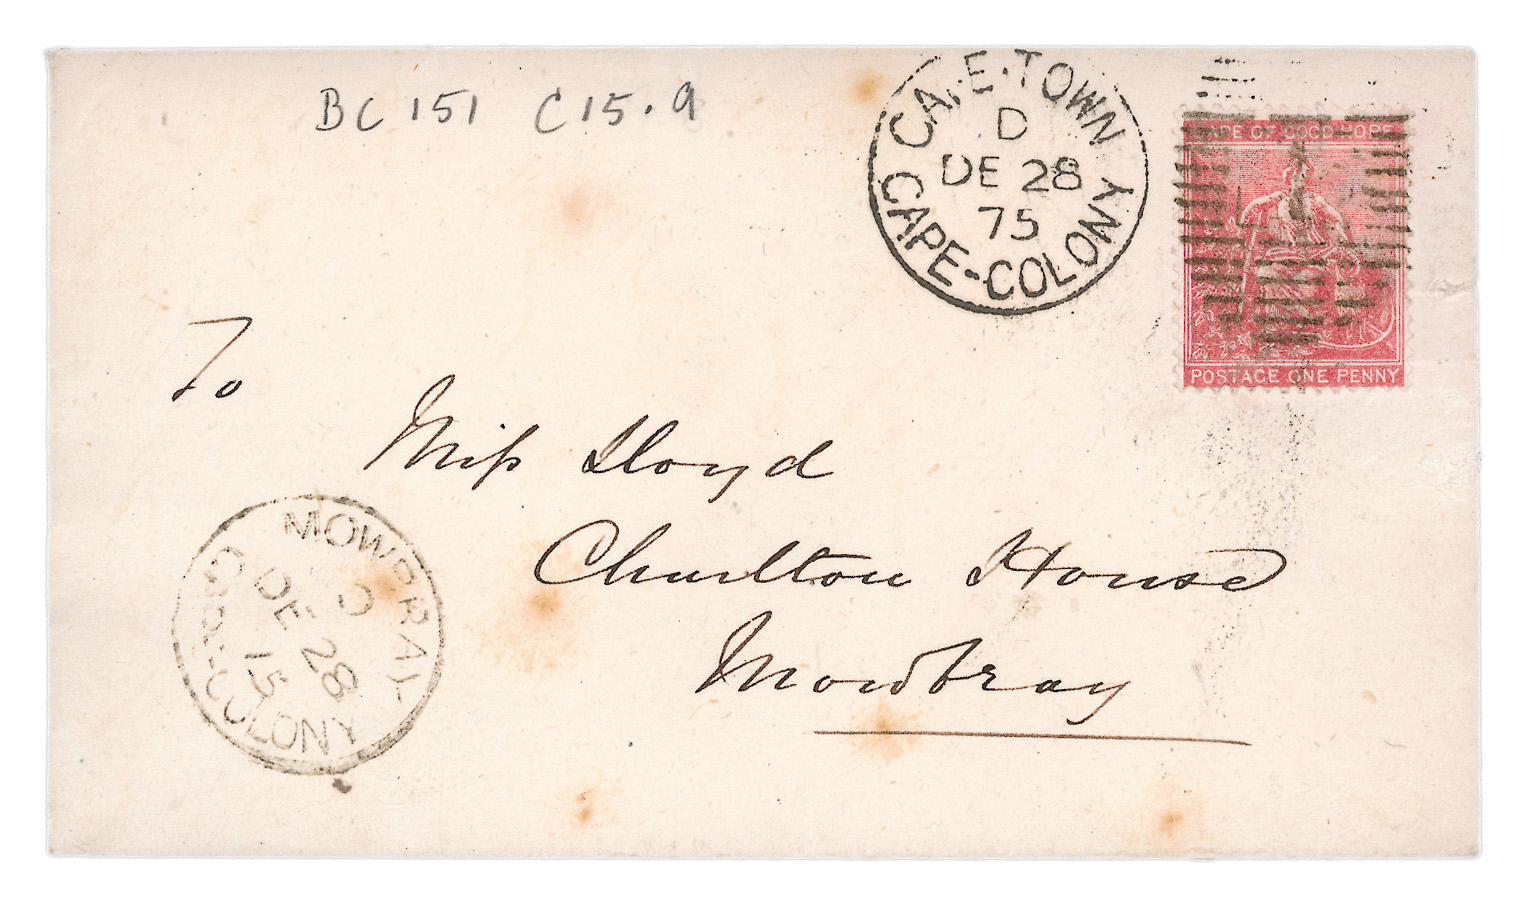 BC 151 C15.9
CAPE·TOWN
D
DE 28
75
CAPE-COLONY
CAPE OF GOOD HOPE
POSTAGE ONE PENNY
To
Miss Lloyd
Charlton House
Mowbray
MOWBRAY
DE 28
COLONY